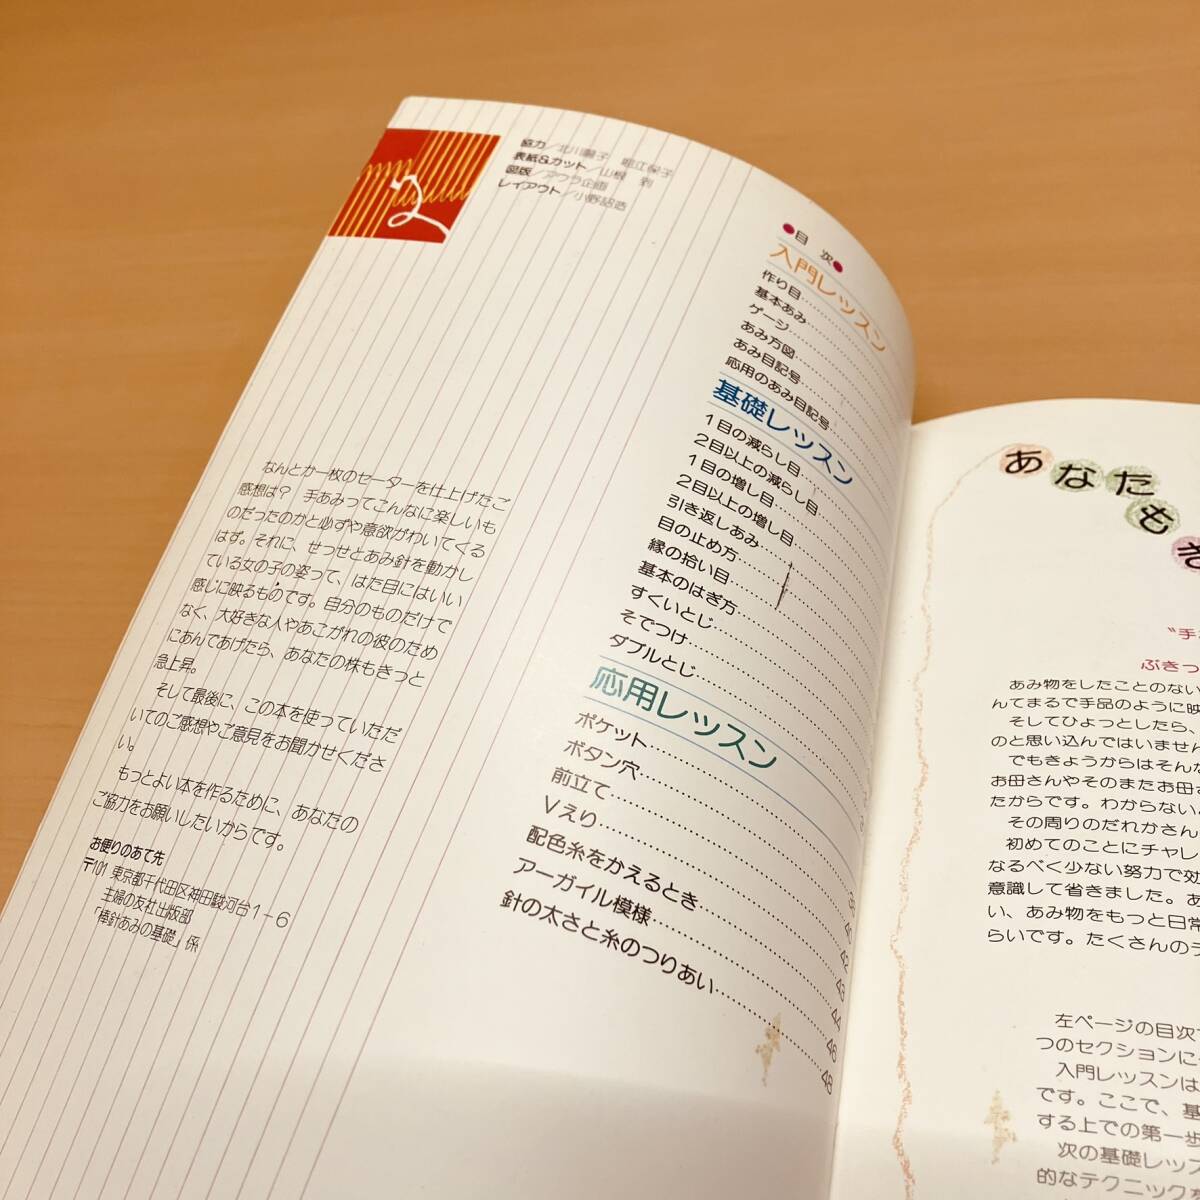 協力／北川
表紙&カット／山根 剥
図版／アウラ企画
レイアウト／小野昭造
なんとか一枚のセーターを仕上げたご
感想は？ 手あみってこんなに楽しいも
のだったのかと必ずや意欲がわいてくる
はず。それに、せっせとあみ針を動かし
ている女の子の姿って、はた目にはいい
感じに映るものです。自分のものだけで
なく、大好きな人やあこがれの彼のため
にあんであげたら、あなたの株もきっと
急上昇。
そして最後に、この本を使っていただ
いてのご感想やご意見をお聞かせくださ
い。
もっとよい本を作るために、あなたの
ご協力をお願いしたいからです。
お便りのあて先
〒101 東京都千代田区神田駿河台1－6
主婦の友社出版部
「棒針あみの基礎」係
●目 次●
入門レッスン
作り目
基本あみ
ゲージ
あみ方図
あみ目記号
応用のあみ目記号
基礎レッスン
1目の減らし目
2目以上の減らし目
1目の増し目
2目以上の増し目
引き返しあみ
目の止め方
縁の拾い目
基本のはぎ方
すくいとじ
そでつけ
ダブルとじ
応用レッスン
ポケット
ボタン穴
前立て
Vえり
配色糸をかえるとき
アーガイル模様
針の太さと糸のつりあい
42
43
44
46
48
あなた
もき
〝手
ぶきっ
あみ物をしたことのない
んてまるで手品のように映
そしてひょっとしたら、
のと思い込んではいません
でもきょうからはそんな
お母さんやそのまたお母さ
たからです。わからない
その周りのだれかさん
初めてのことにチャレ
なるべく少ない努力で効
意識して省きました。あ
い、あみ物をもっと日常
らいです。たくさんの
左ページの目次
つのセクションに
入門レッスンは
です。ここで、基
する上での第一歩
次の基礎レッス
的なテクニックが